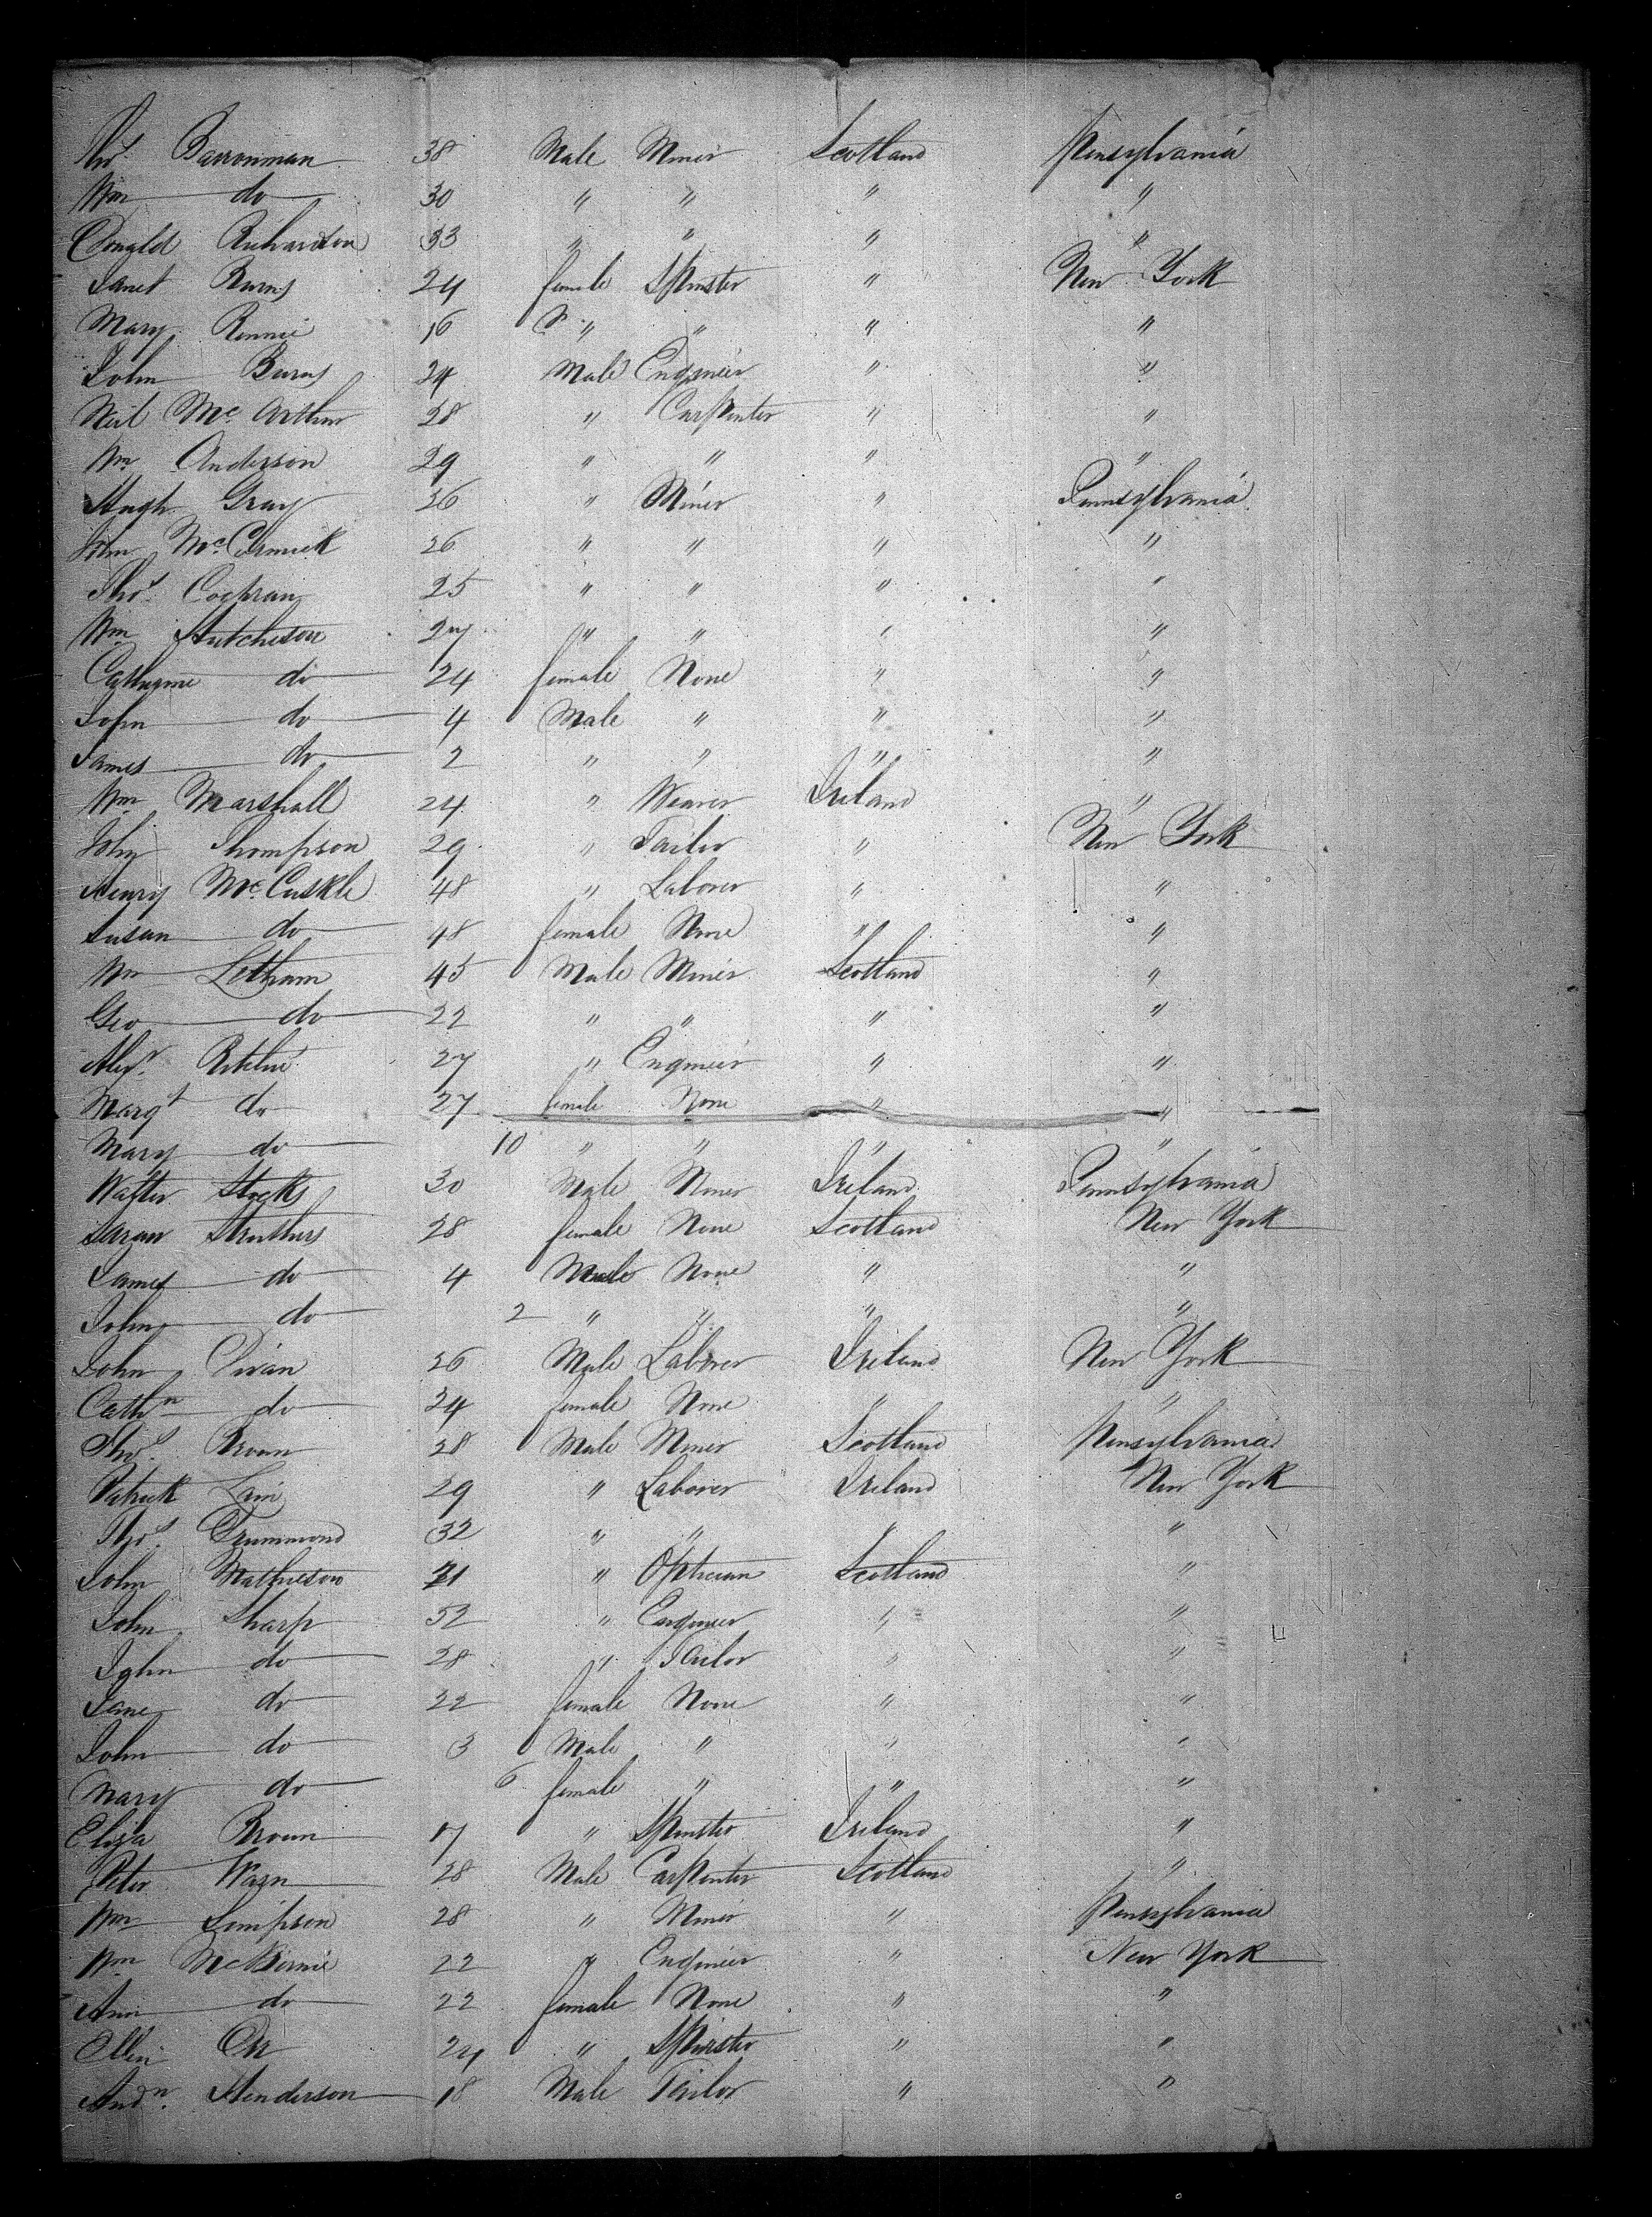 Thos. Barronman 38 Male Miner Scotland Pensylvania
Wm do 30 " " " "
Donald Richardson 33 " " " "
Janet Burns 24 female Spinster " New York
Mary Rennie 16 " " " "
John Burns 24 Male Engineer " "
Neil McArthur 28 " Carpenter " "
Wm Anderson 29 " " " "
Hugh Gray 36 " Miner " Pennsylvania
John McCormick 26 " " " "
Thos. Cochran 25 " " " "
Wm Hutcheson 27 " " " "
Catherine do 24 female None " "
John do 4 Male " " "
James do 2 " " " "
Wm Marshall 24 " Weaver Ireland "
John Thompson 29 " Tailor " New York
Henry McCuskle 48 " Laborer " "
Susan do 48 female None " "
Wm Letham 45 Male Miner Scotland "
Geo do 22 " " " "
Alexr. Ritchie 27 " Engineer " "
Margt do 27 female None " "
Mary do 10 " " " "
Walter Stocks 30 Male Miner Ireland Pennsylvania
Sarah Struthers 28 female None Scotland New York
James do 4 Male None " "
John do 2 " " " "
John Divan 26 Male Laborer Ireland New York
Cathn do 24 female None " "
Thos. Brown 28 Male Miner Scotland Pensylvania
Patrick 29 " Laborer Ireland New York
Thos. Drummond 32 " " " "
John Mathieson 21 " Optician Scotland "
John Sharp 52 " Engineer " "
John do 28 " Tailor " "
Jane do 22 female None " "
John do 3 Male " " "
Mary do 6 female " " "
Eliza Brown 17 " Spinster Ireland "
Peter 28 Male Carpenter Scotland "
Wm Simpson 28 " Miner " Pensylvania
Wm McBirnie 22 " Engineer " New York
Ann do 22 female None " "
Ellen Orr 24 " Spinster " "
Andn. Henderson 18 Male Tailor " "